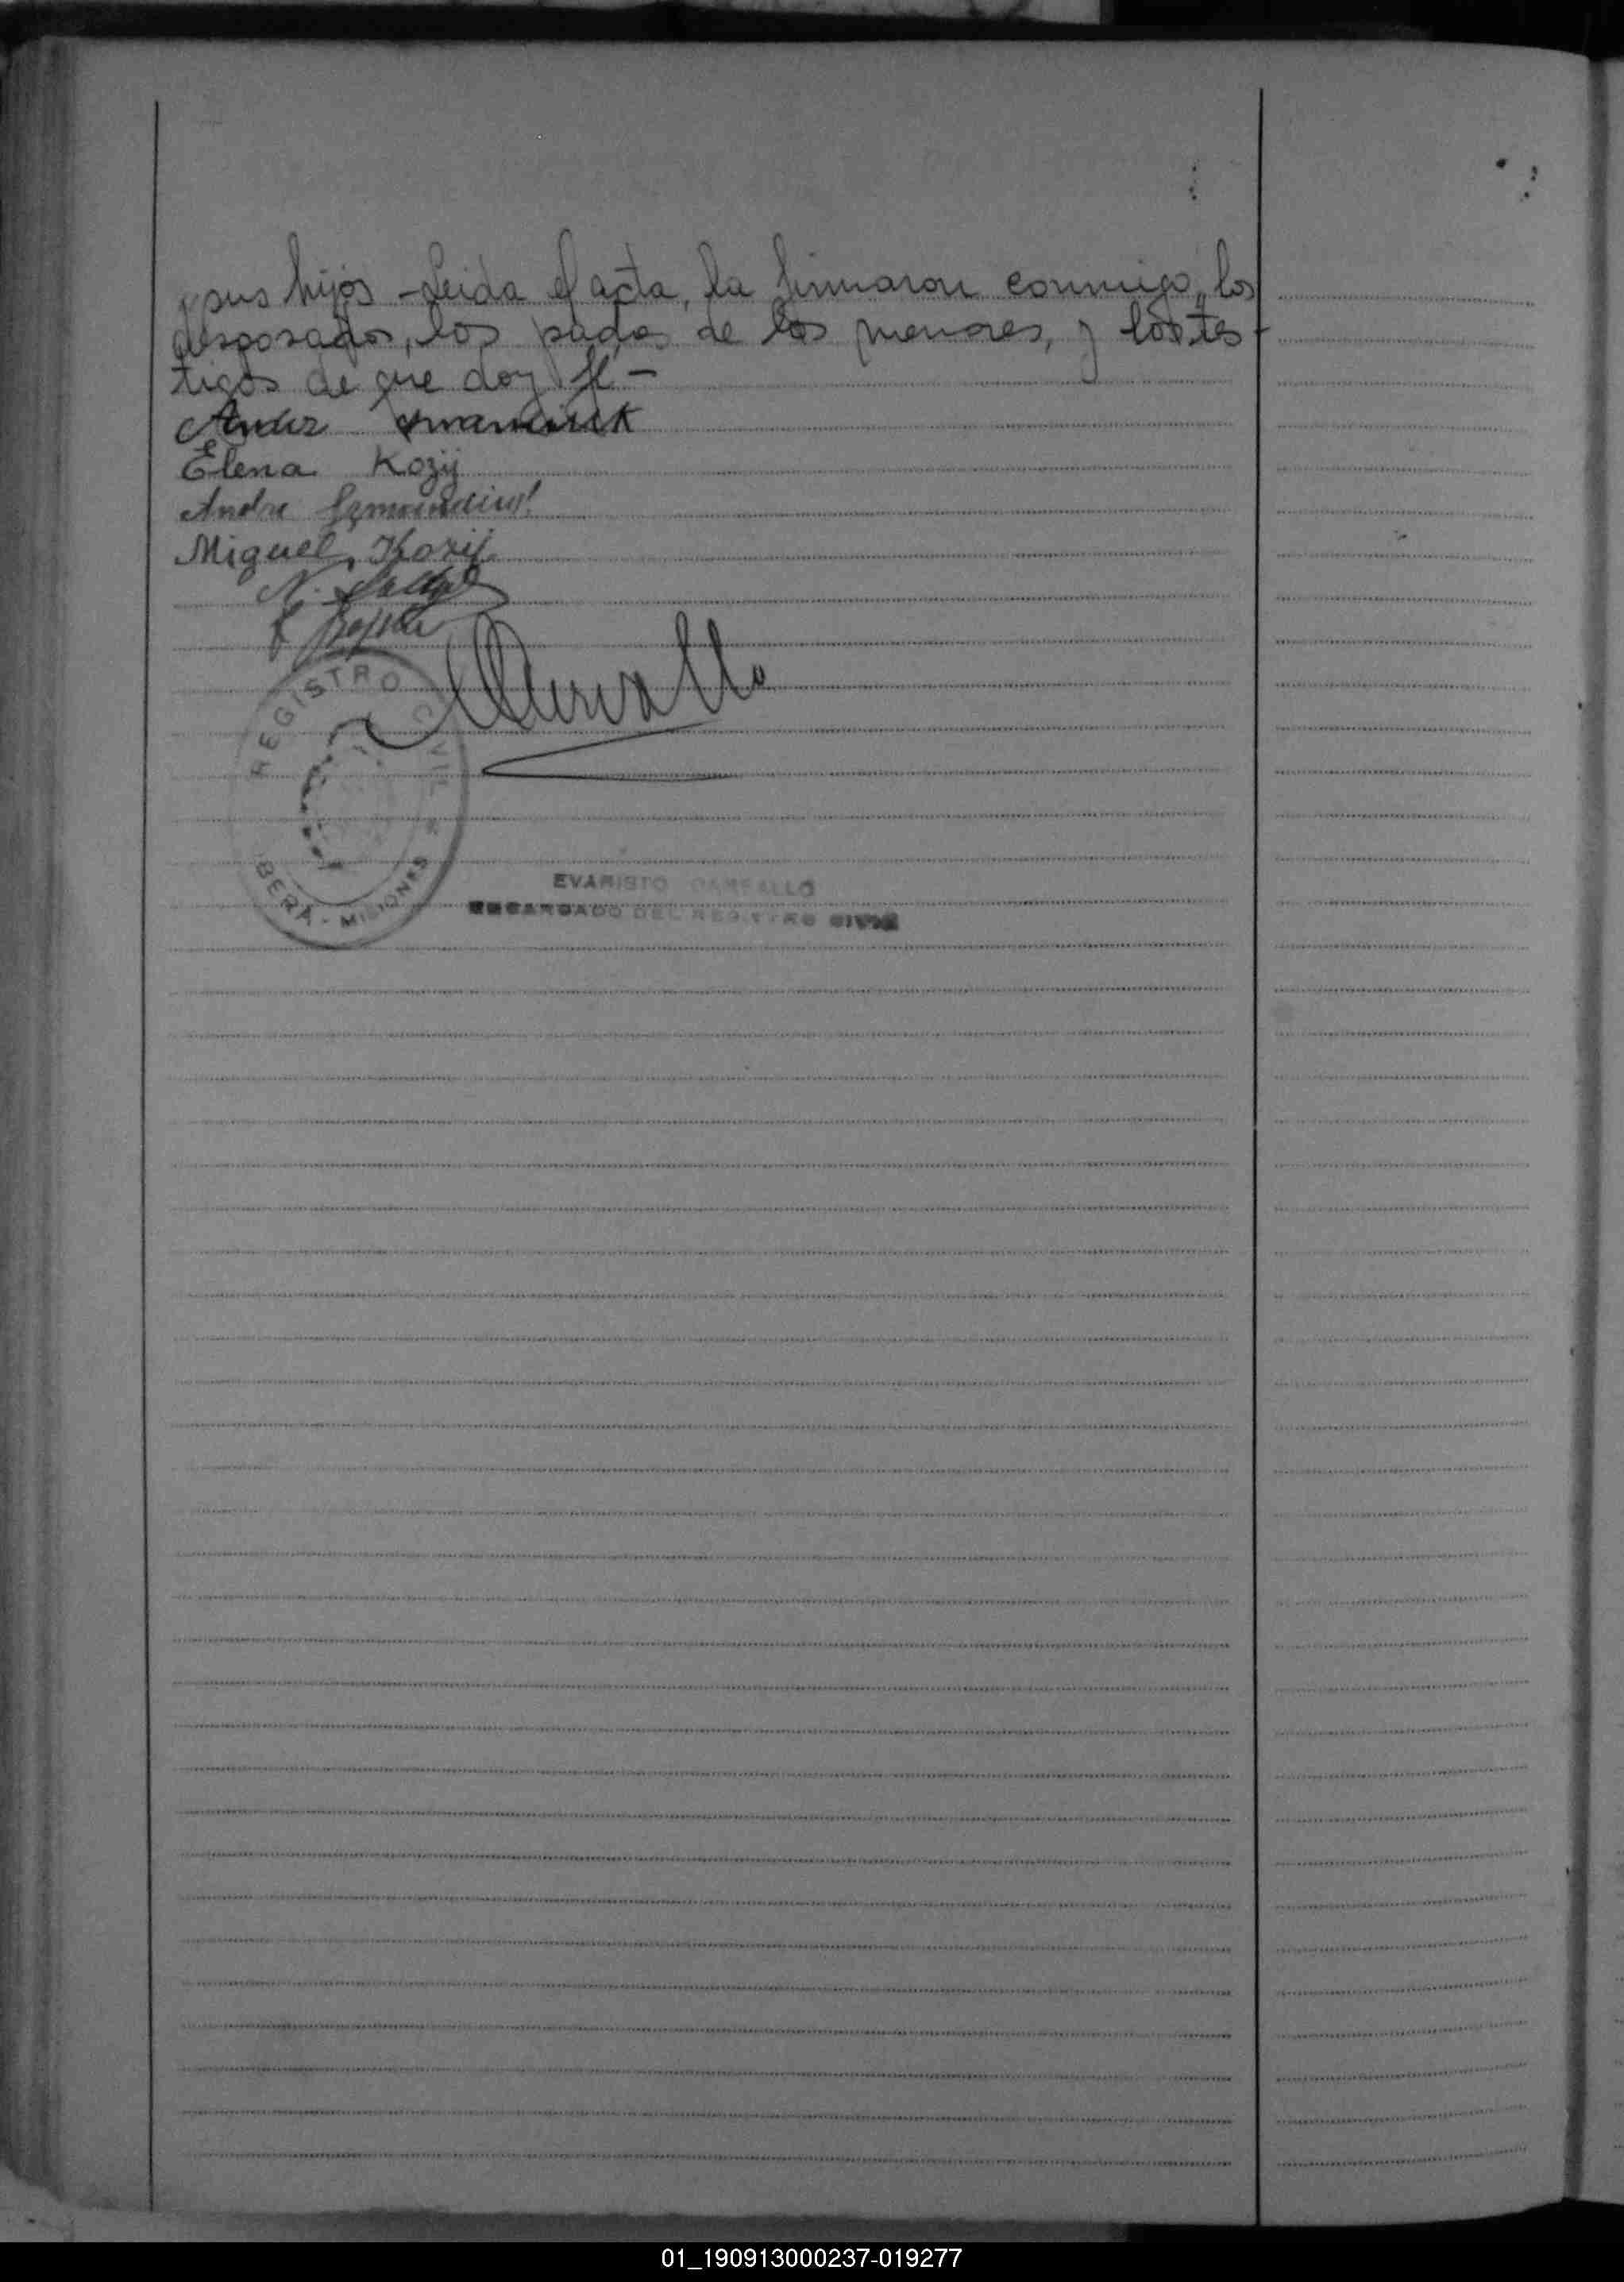 sus hijos - Leida el acta, la firmaron conmigo, los
desposados, los padres de los menores, y los tes-
tigos de que doy fé. -
Elena Kozij
Andre
Miguel Kozij
N.
REGISTRO CIVIL
BERÁ - MISIONES
EVARISTO
ENCARGADO DEL REGISTRO CIVIL
01_190913000237-019277